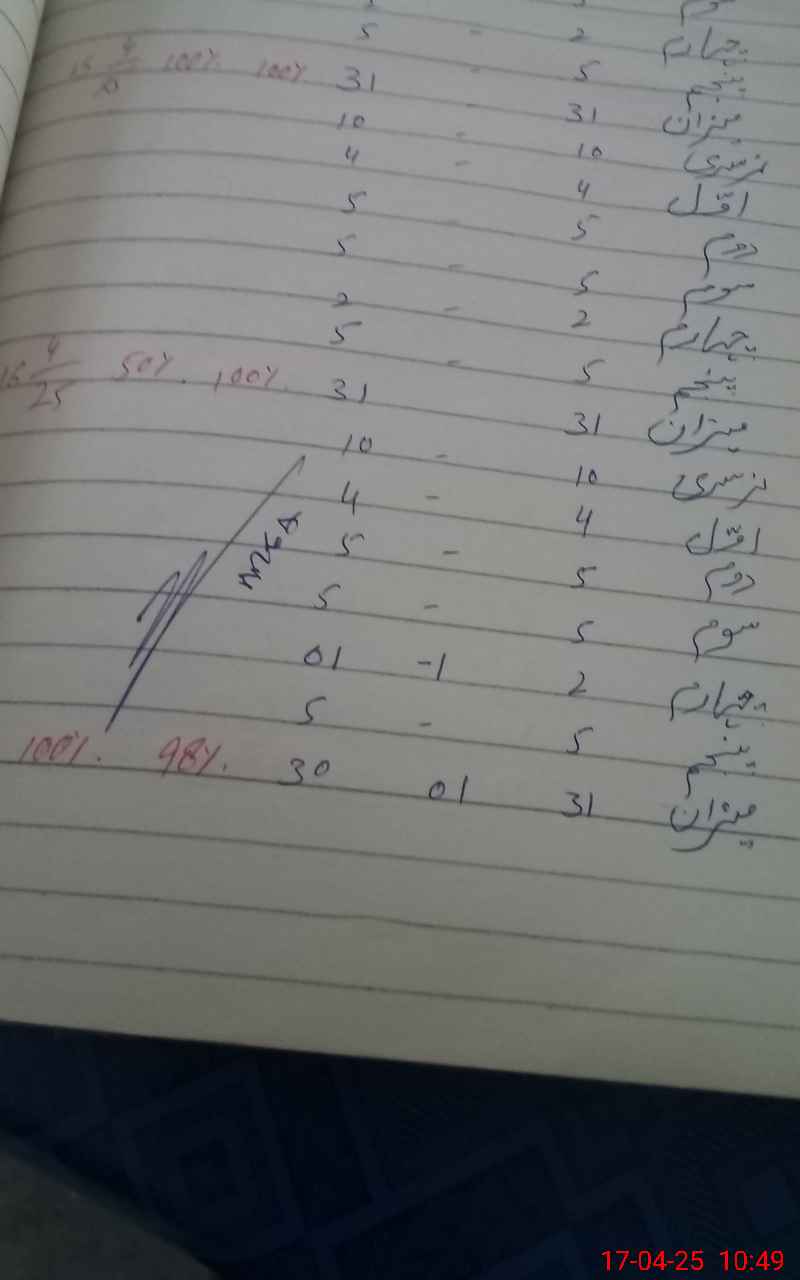 چہارم 2 - 5
پنجم 5 - 31 100% 100% 15 4
میزان 31 - 10
نرسری 10 - 4
اول 4 5
دوم 5 - 5
سوم 5 - 2
چہارم 2 - 5
پنجم 5 31 100% 50% 16 4/25
میزان 31 - 10
نرسری 10 - 4
اول 4 - 5
دوم 5 - 5
سوم 5 -1 01
چہارم 2 - 5
پنجم 5
میزان 31 01 30 98% 100%
17-04-25 10:49